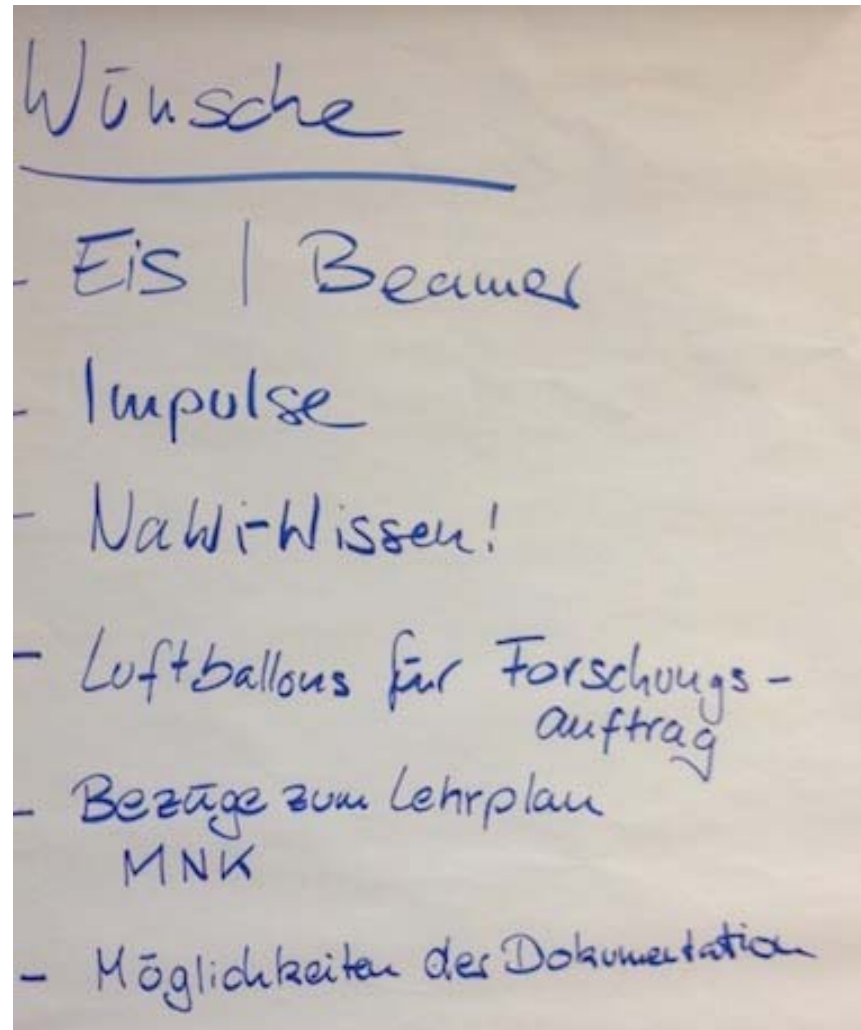 Wünsche
- Eis | Beamer
- Impulse
- NaWi-Wissen!
- Luftballons für Forschungs-
auftrag
- Bezüge zum Lehrplan
MNK
- Möglichkeiten der Dokumentation